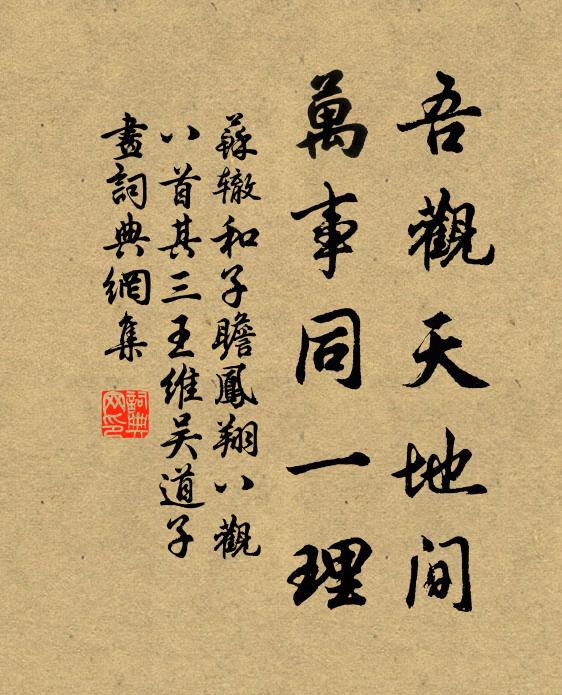 吾觀天地間
萬事同一理
蘇辙和子瞻鳳翔八觀
八首其三王維吴道子
畫詞典網集
詞典网印